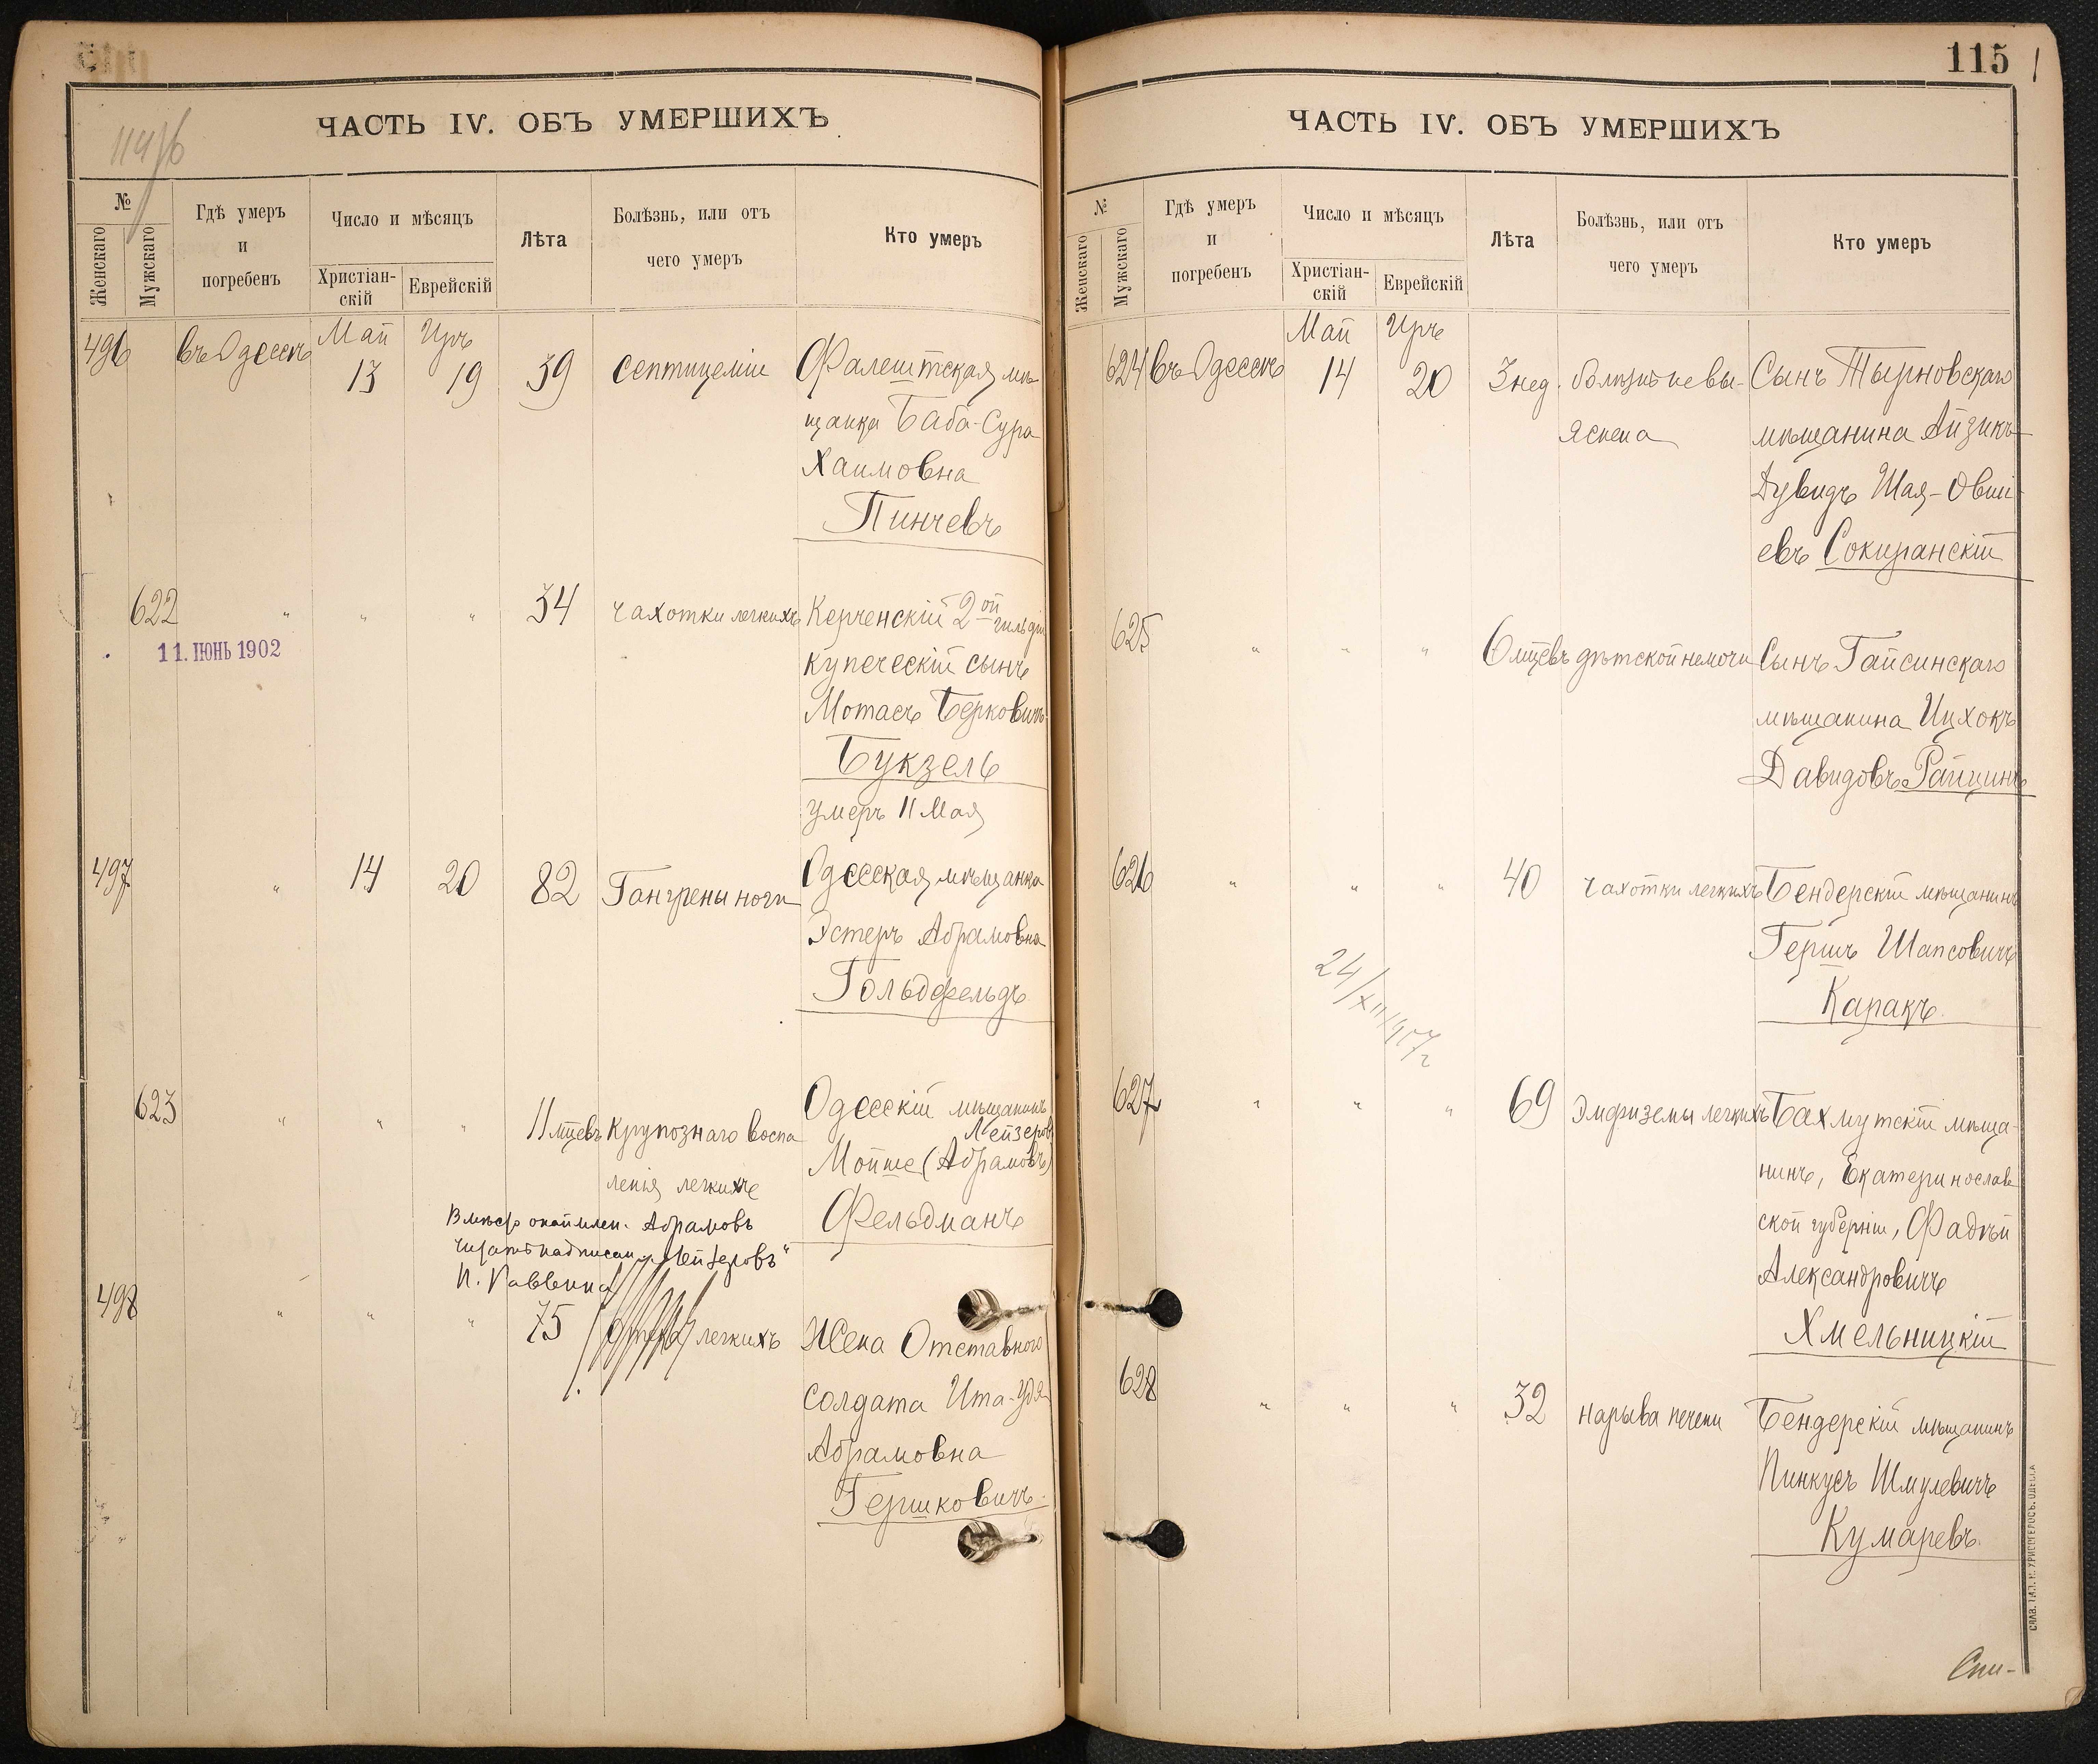 ЧАСТЬ IV. ОБЪ УМЕРШИХЪ
№
Женскаго
Мужскаго
Гдѣ умеръ
и
погребенъ
Число и мѣсяцъ
Христіан-
скій
Еврейскій
Лѣта
Болѣзнь, или отъ
чего умеръ
Кто умеръ
Май Иръ
496 въ Одессѣ 13 19 39 септицеміи Фалештская мѣ-
щанка Баба-Сура
Хаимовна
Пинчевъ
622 " " " 34 чахотки легкихъ Керченскій 2ой гильдіи
11. ІЮНЬ 1902
купеческій сынъ
Мотасъ Берковичъ
Букзель
умеръ 11 Мая
497 " 14 20 82 Гангрены ноги Одесская мѣщанка
Эстеръ Абрамовна
Гольдфельдъ
623 " " " 11 мцевъ Крупознаго воспа Одесскій мѣщанинъ
Лейзеровъ
ленія легкихъ Мойше (Абрамовъ)
Фельдманъ
Вмѣсто окаймлен. Абрамовъ
читать надписан. „Лейзеровъ"
И. Раввина
498 " " " 75 легкихъ Жена Отставного
солдата Ита-Удя
Абрамовна
Гершковичъ
115
ЧАСТЬ IV. ОБЪ УМЕРШИХЪ
№
Женскаго
Мужскаго
Гдѣ умеръ
и
погребенъ
Число и мѣсяцъ
Христіан-
скій
Еврейскій
Лѣта
Болѣзнь, или отъ
чего умеръ
Кто умеръ
Май Иръ
624 въ Одессѣ 14 20 3 нед. болѣзнь невы- Сынъ Тырновскаго
яснена мѣщанина Айзикъ
Дувидъ Шая-Овши-
евъ Сокиранскій
625 " " " 6 мцевъ дѣтской немочи Сынъ Гайсинскаго
мѣщанина Ицхокъ
Давидовъ Райцинъ
626 " " " 40 чахотки легкихъ Бендерскій мѣщанинъ
Гершъ Шапсовичъ
Каракъ
24/XII 1907 г
627 " " " 69 Эмфиземы легкихъ Бахмутскій мѣща-
нинъ, Екатеринослав
ской губерніи, Фадѣй
Александровичъ
Хмельницкій
628 " " " 32 нарыва печени Бендерскій мѣщанинъ
Пинкусъ Шмулевичъ
Кумаревъ
Спи-